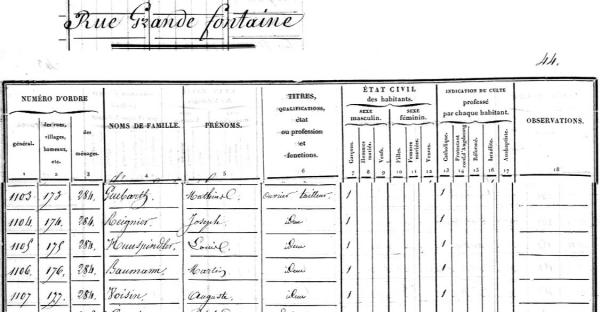 Rue Grande fontaine
44.
NUMÉRO D'ORDRE
général.
des rues, villages, hameaux, etc.
des ménages.
NOMS DE FAMILLE.
PRÉNOMS.
TITRES, QUALIFICATIONS, état ou profession et fonctions.
ÉTAT CIVIL des habitants.
SEXE masculin.
SEXE féminin.
Garçons.
Hommes mariés.
Veufs.
Filles.
Femmes mariées.
Veuves.
INDICATION DU CULTE professé par chaque habitant.
Catholique.
Protestant conf.d'Augsbourg
Réformé.
Israélite.
Anabaptiste.
OBSERVATIONS.
1 2 3 4 5 6 7 8 9 10 11 12 13 14 15 16 17 18
1103 173 284 ouvrier tailleur 1 1
1104. 174. 284. Reignier Joseph. Idem 1 1
1105 175 284. Louis. Idem 1 1
1106. 176. 284. Baumann. Martin Idem 1 1
1107 177. 284. Voisin. Auguste. Idem 1 1